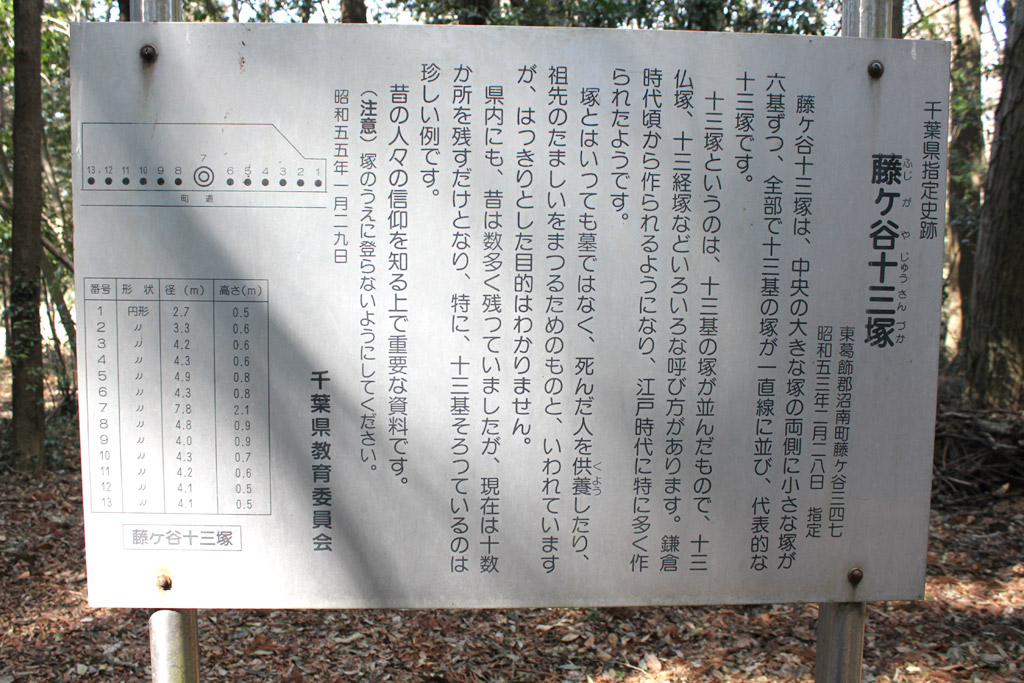 千葉県指定史跡
藤ケ谷十三塚
ふじ が や じゅう さん づか
東葛飾郡沼南町藤ケ谷三四七
昭和五三年二月二八日 指定
藤ケ谷十三塚は、中央の大きな塚の両側に小さな塚が
六基ずつ、全部で十三基の塚が一直線に並び、代表的な
十三塚です。
十三塚というのは、十三基の塚が並んだもので、十三
仏塚、十三経塚などいろいろな呼び方があります。鎌倉
時代頃から作られるようになり、江戸時代に特に多く作
られたようです。
塚とはいっても墓ではなく、死んだ人を供養したり、
くよう
祖先のたましいをまつるためのものと、いわれています
が、はつきりとした目的はわかりません。
県内にも、昔は数多く残つていましたが、現在は十数
か所を残すだけとなり、特に、十三基そろつているのは
珍しい例です。
昔の人々の信仰を知る上で重要な資料です。
(注意) 塚のうえに登らないようにしてください。
昭和五五年一月二九日
千葉県教育委員会
13 12 11 10 9 8 7 6 5 4 3 2 1
町道
番号 形状 径(m) 高さ(m)
1 円形 2.7 0.5
2 〃 3.3 0.6
3 〃 4.2 0.6
4 〃 4.3 0.6
5 〃 4.9 0.8
6 〃 4.3 0.8
7 〃 7.8 2.1
8 〃 4.8 0.9
9 〃 4.0 0.9
10 〃 4.3 0.7
11 〃 4.2 0.6
12 〃 4.1 0.5
13 〃 4.1 0.5
藤ケ谷十三塚